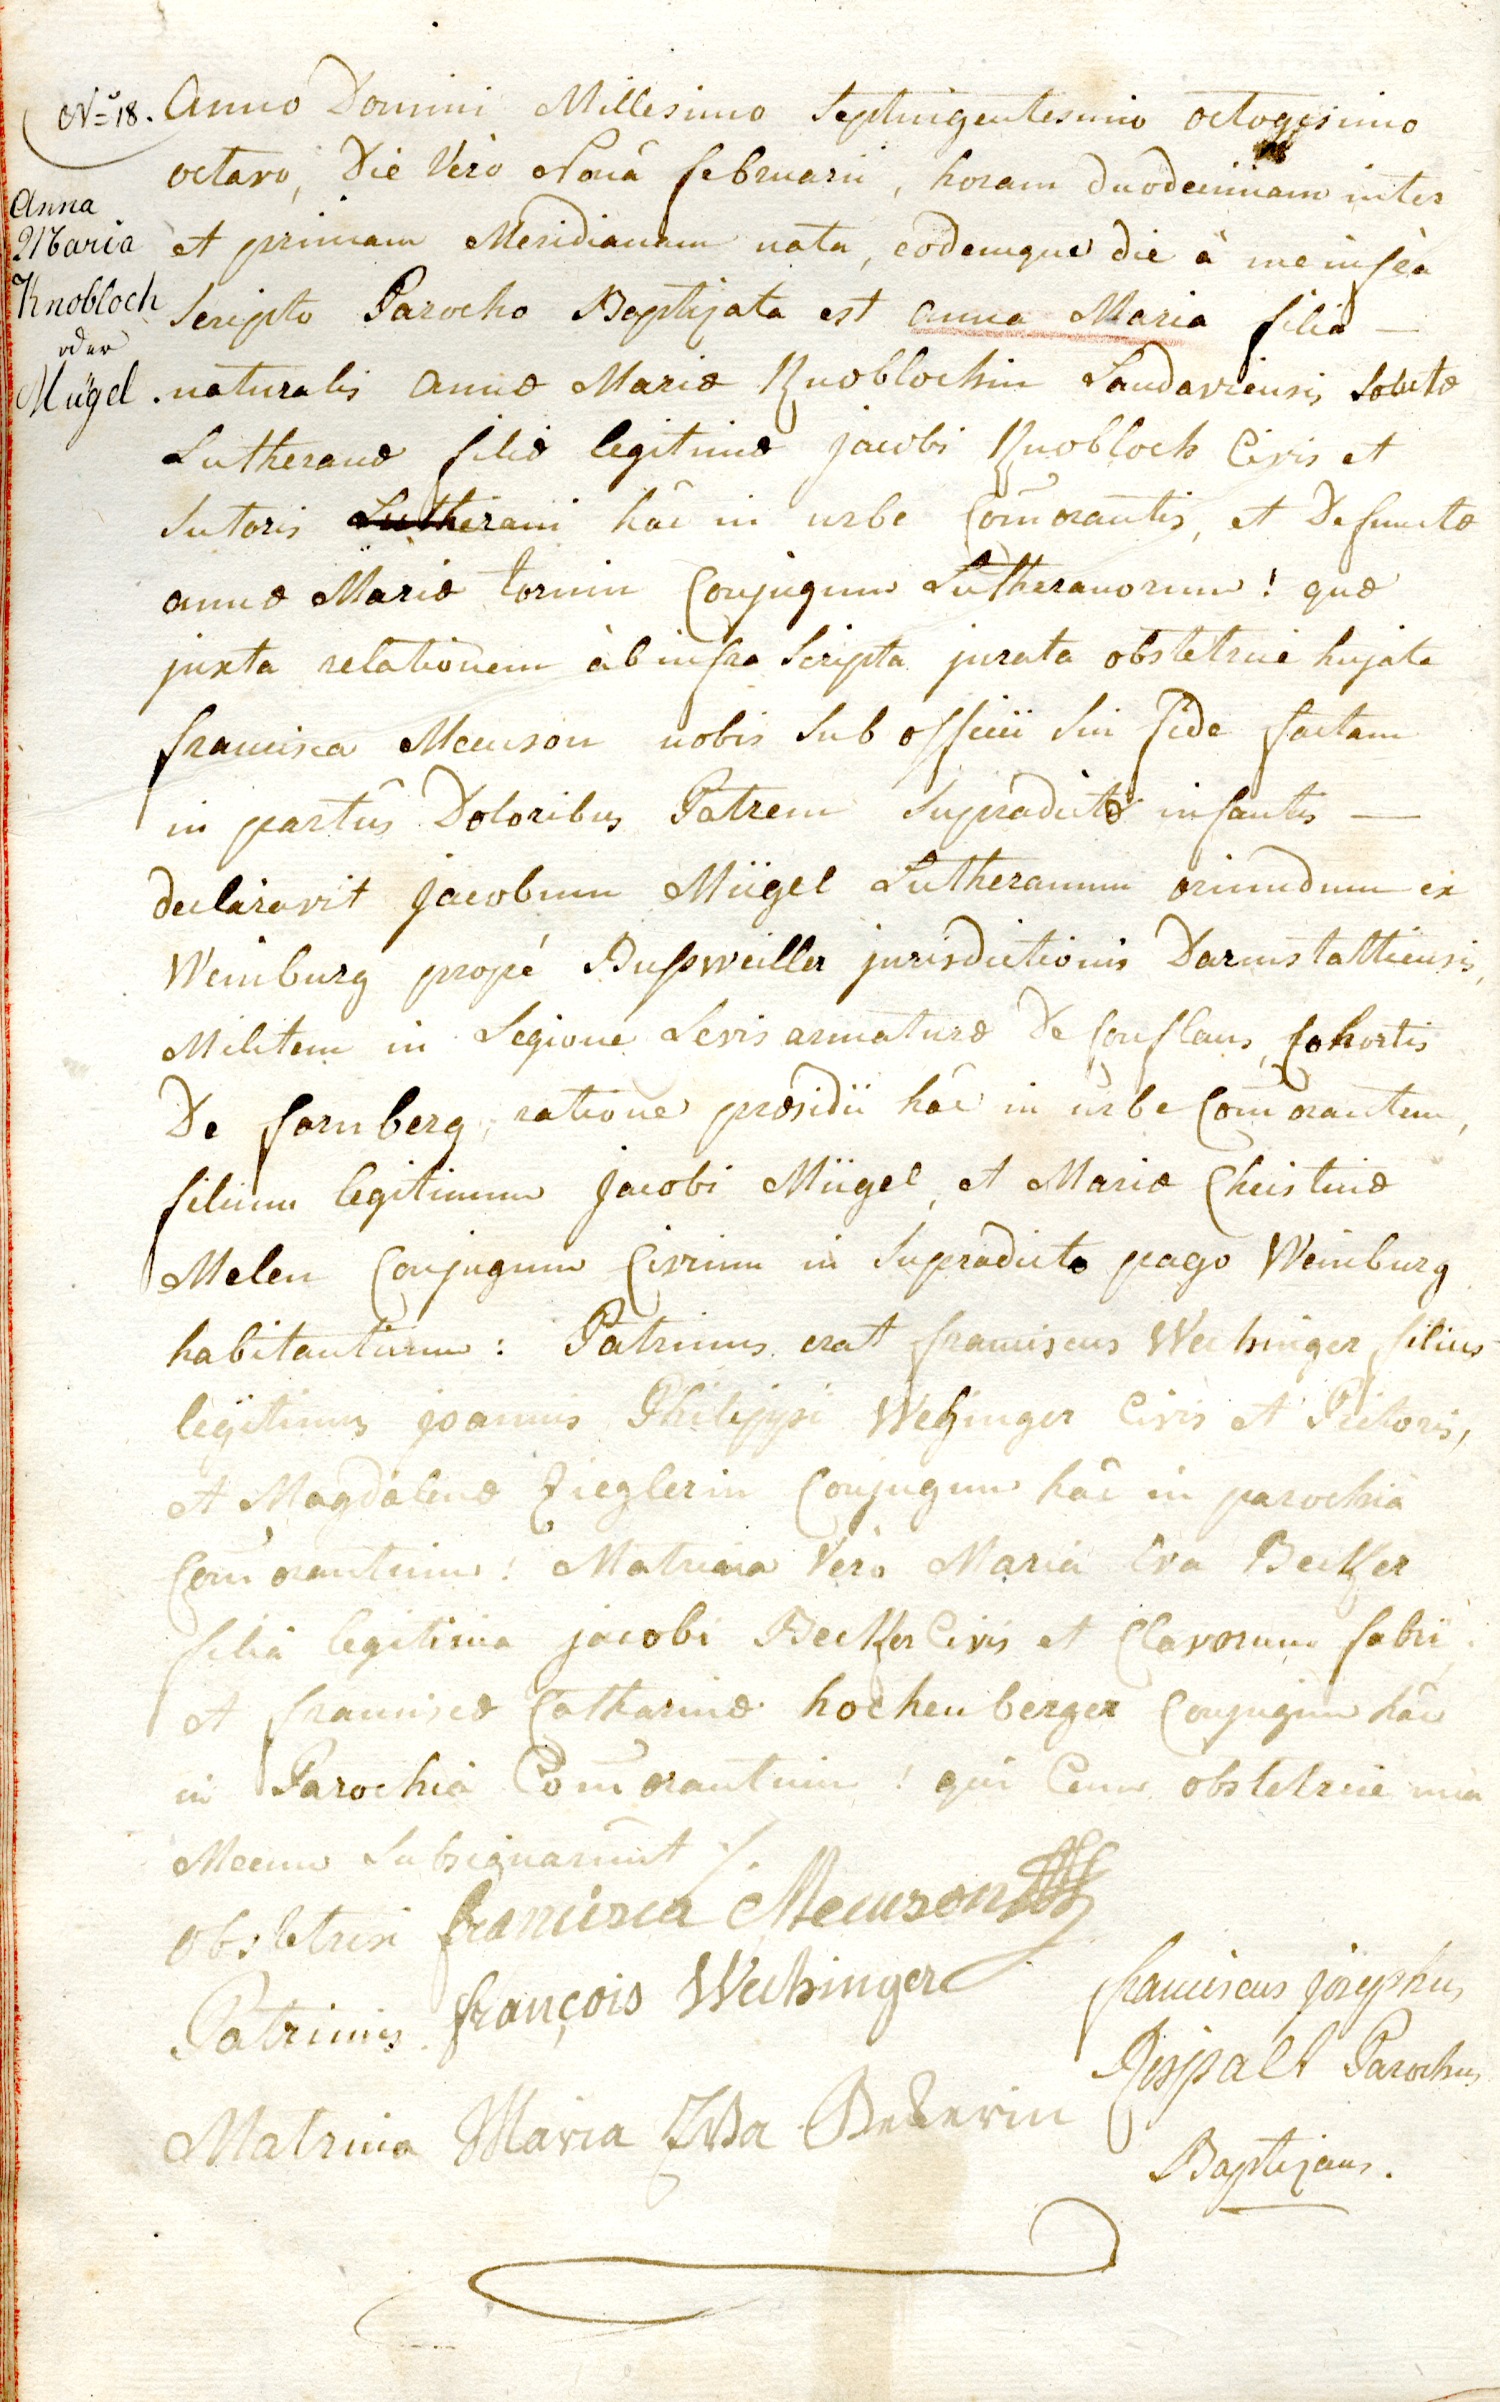 No 18.
Anna
Maria
Knobloch
oder
Mügel.
Anno Domini Millesimo Septuigentesimo octogesimo
octavo, Die Vero Nonâ februarii, horam duodecimam inter
et primam Meridianam nata, eodemque die à me infrà
Scripto Parocho Baptizata est anna Maria filia —
naturalis annæ Mariæ Knoblochin Landaviensis Solutæ
Lutheranæ filiæ legitimæ jacobi Knobloch Civis et
Sutoris Lutherani hâc in urbe Com̄orantis, et Defunctæ
annæ Mariæ tornin Conjugum Lutheranorum! quæ
juxta relationem àb infra Scripta jurata obstetrice hujate
francisca Meeuson nobis Sub officii Sui fide factam
in partûs Doloribus Patrem Supradictæ infantis —
declaravit jacobum Mügel Lutheranum oriundum ex
Weinburg propé Bußweiller jurisdictionis Darmstattiensis,
Militem in Legione Levis armaturæ De Conflans, Cohortis
De fornberg, ratione præsidii hâc in urbe Com̄orantem,
filium legitimum jacobi Mügel, et Mariæ Christinæ
Melen Conjugum Civium in Supradicto pago Weinburg
habitantium: Patrinus erat franciscus Wechinger filius
legitimus joannis Philippi Wechinger Civis et Pictoris,
et Magdalenæ Zieglerin Conjugum hâc in parochia
Com̄orantium! Matrina Vero Maria Eva Becker
filia legitima jacobi Becker Civis et Clavorum fabri
et franciscæ Catharinæ hochenberger Conjugum hâc
in Parochia Com̄orantium! qui Cum obstetrice una
Mecum Subsignarunt ./.
Obstetrix francisca Meeuson
Patrinus françois Wechinger
Matrina Maria Eva Bekerin
franciscus josephus
Rispalt Parochus
Baptizans.